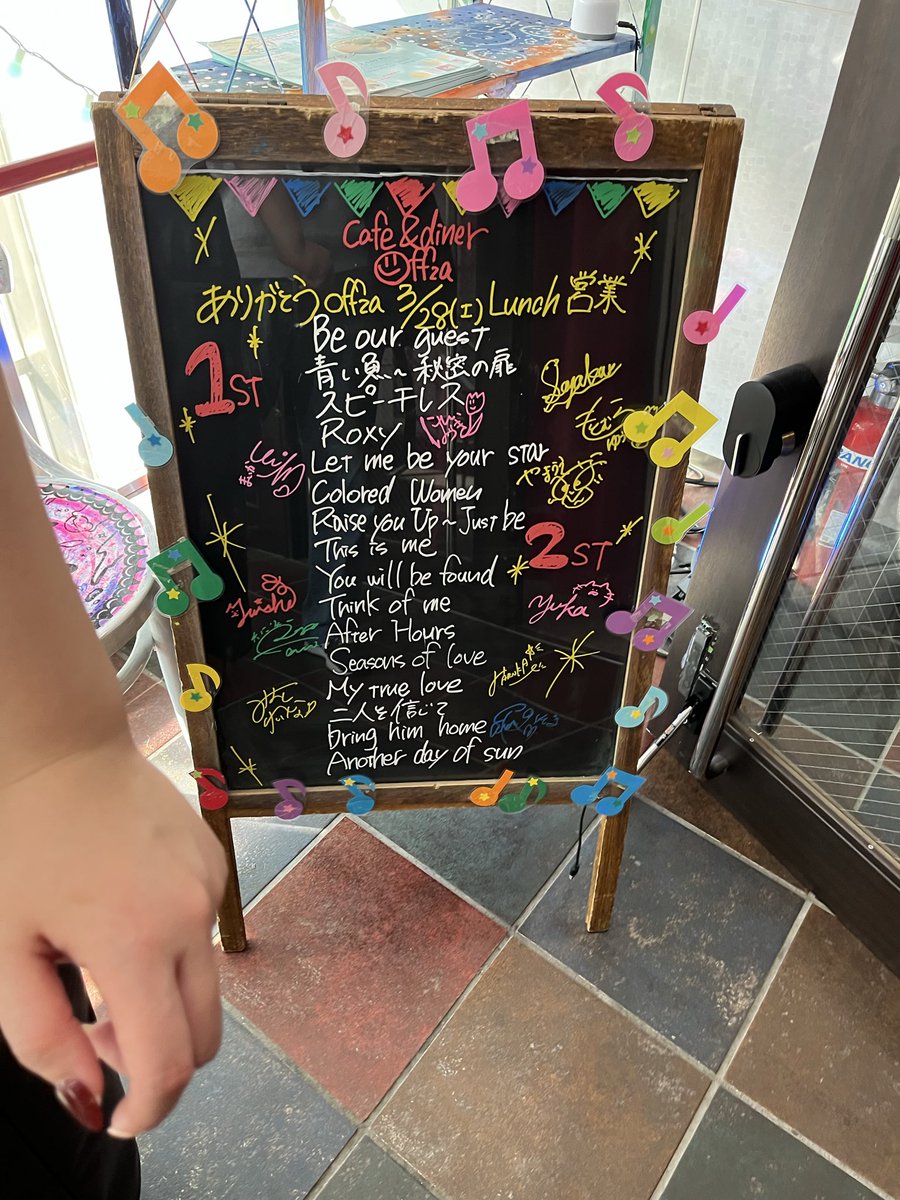 Cafe & diner
Offza
ありがとう Offza 3/28(土) Lunch 営業
1ST
Be our guest
青い魚〜秘密の扉
スピーチレス
Roxy
Let me be your star
Colored Women
Raise you Up~Just be
2ST
This is me
You will be found
Think of me
After Hours
Seasons of love
My true love
二人を信じて
bring him home
Another day of sun
Yuka